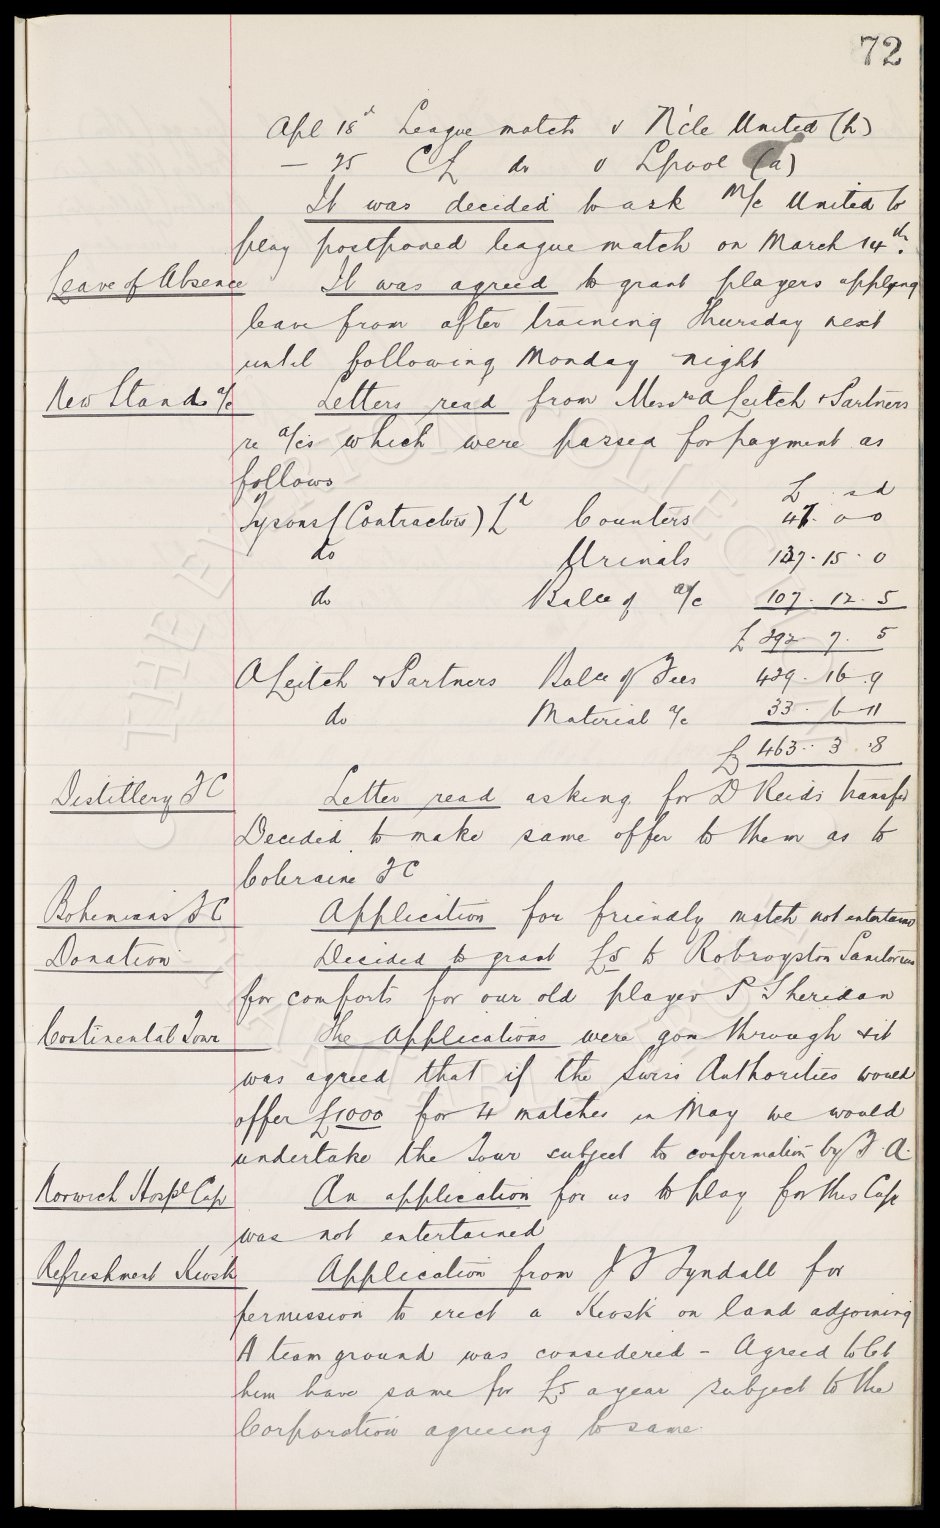 72
Apl 18th League match v N'cle United (h)
— 25 CL do v Lpool (a)
It was decided to ask M/c United to
play postponed league match on March 14th.
Leave of Absence It was agreed to grant players applying
leave from after training Thursday next
until following Monday night
New Stands a/c Letters read from Messrs A Leitch & Partners
re a/cs which were passed for payment as
follows
£ s d
Tysons (Contractors) Ld Counters 47. 0 0
do Urinals 137. 15. 0
do Balce of a/c 107. 12. 5
£ 292. 7. 5
A Leitch & Partners Balce of Fees 429. 16. 9
do Material a/c 33. 6 11
£ 463. 3. 8
Distillery FC Letter read asking for D Reids transfer
Decided to make same offer to them as to
Coleraine FC
Bohemians FC Application for friendly match not entertained
Donation Decided to grant £5 to Robroyston Sanitorium
for comforts for our old player P Sheridan
Continental Tour The applications were gon through & it
was agreed that if the Swiss Authorities would
offer £1000 for 4 matches in May we would
undertake the Tour subject to confirmation by F.A.
Norwich Hospl Cup An application for us to play for this Cup
was not entertained
Refreshment Kiosk Application from J F Tyndall for
permission to erect a Kiosk on land adjoining
A team ground was considered - Agreed to let
him have same for £5 a year subject to the
Corporation agreeing to same.
THE EVERTON COLLECTION